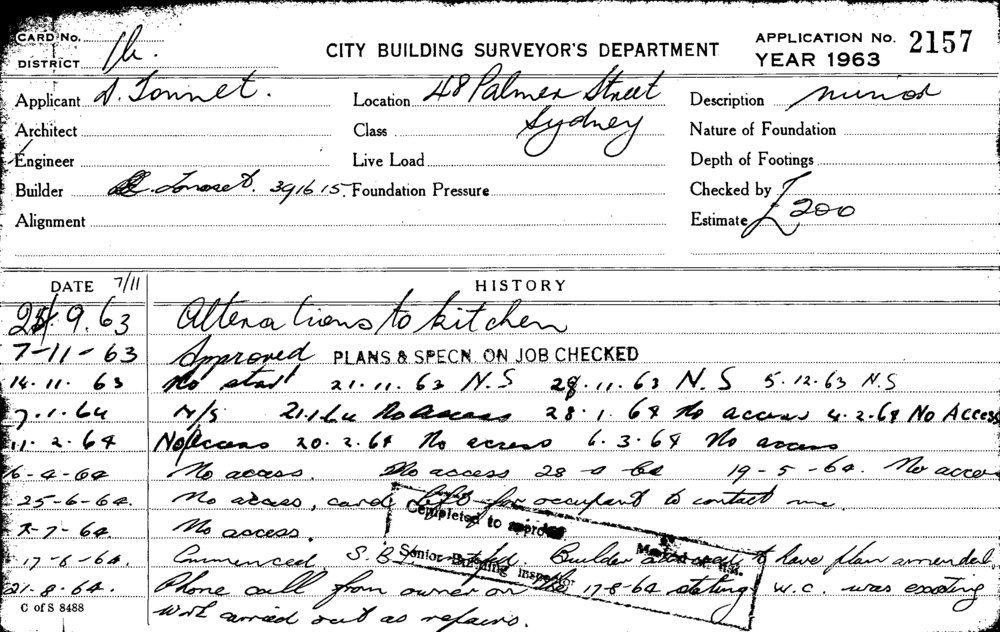 CARD No.
DISTRICT
CITY BUILDING SURVEYOR'S DEPARTMENT
APPLICATION No. 2157
YEAR 1963
Applicant D. Tonnet.
Location 48 Palmer Street
Sydney
Description minor
Architect
Class
Nature of Foundation
Engineer
Live Load
Depth of Footings
Builder 391615
Foundation Pressure
Checked by
Alignment
Estimate £200
DATE 7/11
HISTORY
9.63 Alterations to kitchen
7-11-63 Approved PLANS & SPECN. ON JOB CHECKED
14.11.63 No start 21.11.63 N.S 28.11.63 N.S 5.12.63 N.S
7.1.64 N/S 21.1.64 No access 28.1.64 No access 4.2.64 No Access
11.2.64 No Access 20.2.64 No access 6.3.64 No access
6-4-64 No access. No access 28-4-64 19-5-64. No access
25-6-64. No access, card left for occupant to contact me.
7-64. No access.
Completed to approval
17-6-64. Commenced, S.B. Builder to have plan amended,
Senior Building Inspector
21.8.64. Phone call from owner on the 17-8-64 stating W.C. was existing
C of S 8488
work carried out as repairs.